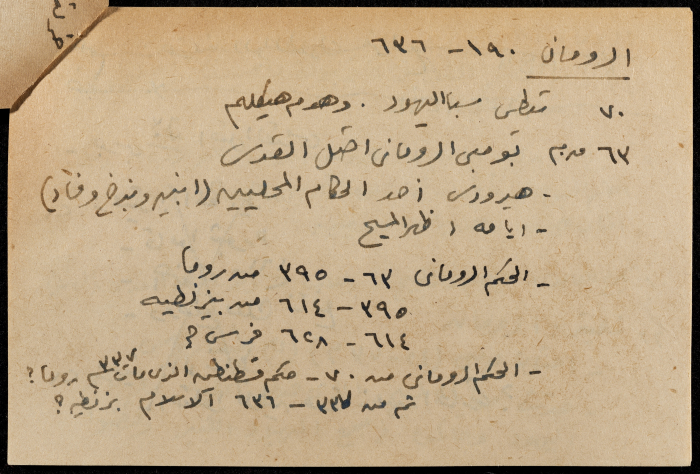 الرومان ١٩٠ - ٦٣٦
٧٠ سبا اليهود. وهدم هيكلهم
٦٣ ق.م بومبي الروماني احتل القدس
- هيرودس احد الحكام المحليين (ابنيه وبذخ وفساد)
- ايامه ظهر المسيح
- الحكم الروماني ٦٣ - ٣٩٥ من روما
٣٩٥ - ٦١٤ من بيزنطيه
٦١٤ - ٦٢٨ فرس ؟
- الحكم الروماني من ٧٠ - حكم قسطنطين الذي مات ٣٣٧ م روما؟
ثم من ٣٣٧ - ٦٣٦ الاسلام بزنطيه؟